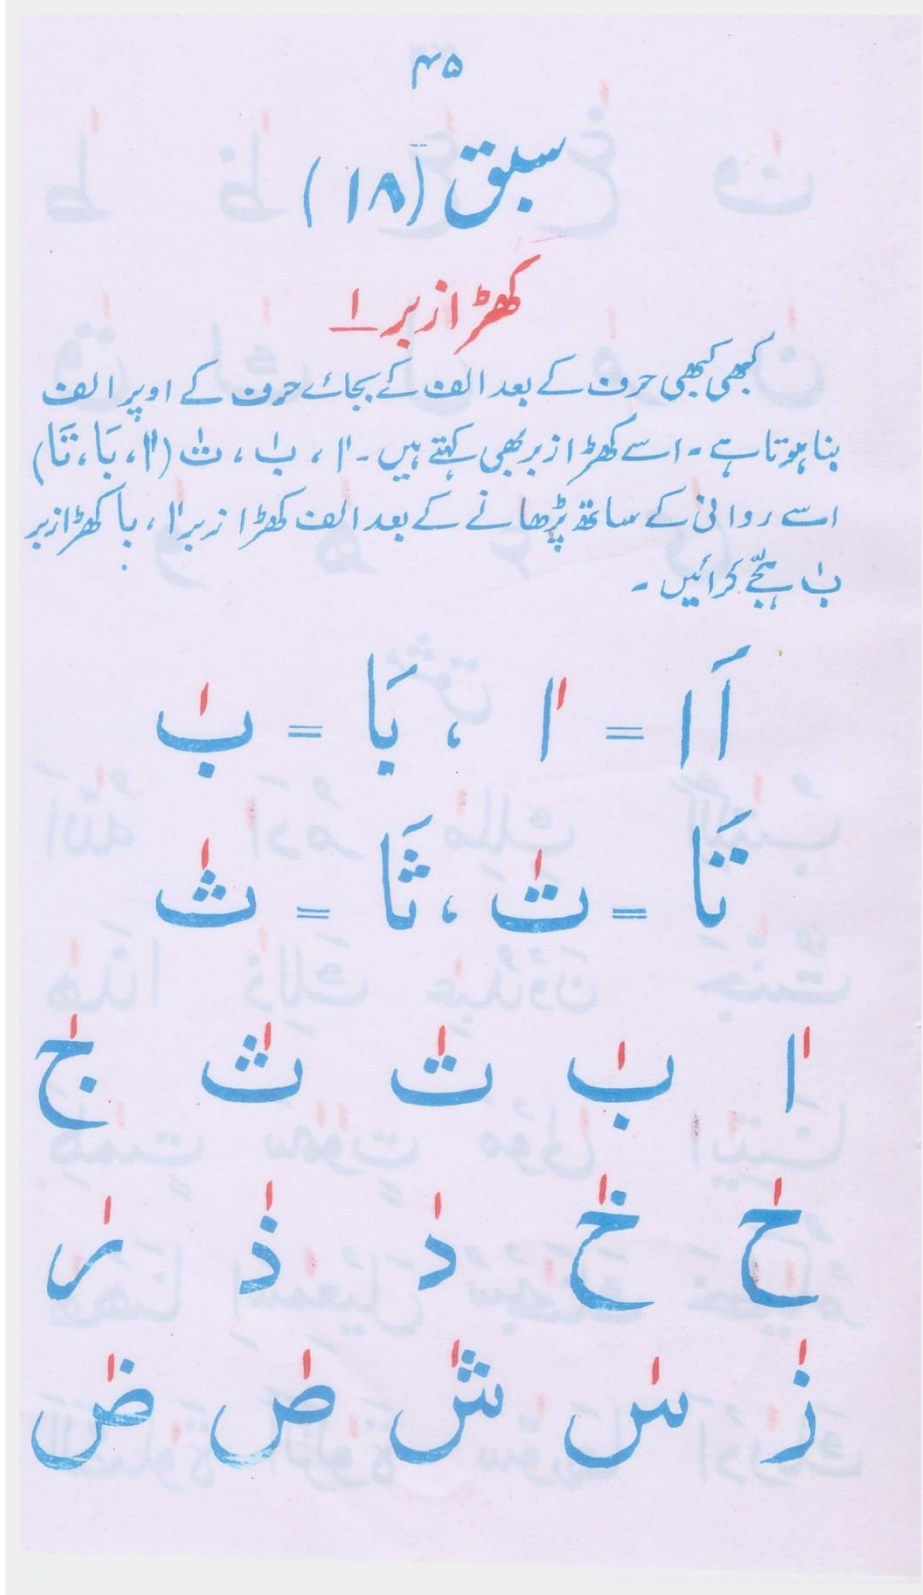 ۴۵
سبق (۱۸)
کھڑا زبر ــٰـ
کبھی کبھی حرف کے بعد الف کے بجائے حرف کے اوپر الف
بنا ہوتا ہے۔ اسے کھڑا زبر بھی کہتے ہیں۔ اٰ ، بٰ ، تٰ (اٰ، بَا، تَا)
اسے روانی کے ساتھ پڑھانے کے بعد الف کھڑا زبر اٰ، با کھڑا زبر
بٰ ہجّے کرائیں۔
اَا = اٰ ، بَا = بٰ
تَا = تٰ ، ثَا = ثٰ
اٰ بٰ تٰ ثٰ جٰ
حٰ خٰ دٰ ذٰ رٰ
زٰ سٰ شٰ صٰ ضٰ